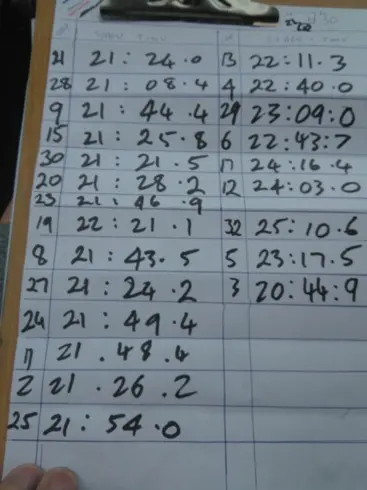 21 21:24.0 13 22:11.3
28 21:08.4 4 22:40.0
9 21:44.4 29 23:09:0
15 21:25.8 6 22:43:7
30 21:21.5 17 24:16.4
20 21:28.2 12 24:03.0
23 21:46.9
19 22:21.1 32 25:10.6
8 21:43.5 5 23:17.5
27 21:24.2 3 20:44:9
24 21:49.4
11 21.48.4
2 21.26.2
25 21:54.0